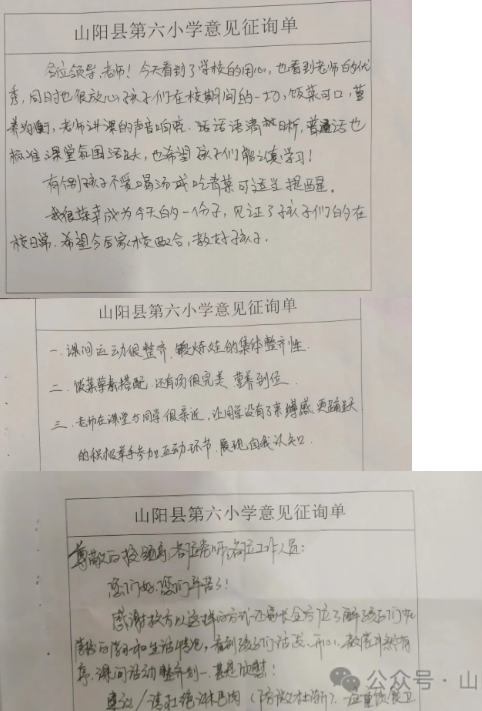 山阳县第六小学意见征询单
各位领导,老师!今天看到了学校的用心,也看到老师的优
秀,同时也很放心孩子们在校期间的一切,饭菜可口,营
养均衡,老师讲课的声音响亮.话语清晰,普通话也
标准课堂氛围活跃,也希望孩子们能认真学习!
有个别孩子不爱喝汤或吃青菜可适当提醒。
我很荣幸成为今天的一份子,见证了孩子们的在
校日常.希望今后家校配合,教好孩子.
山阳县第六小学意见征询单
一.课间运动很整齐.锻炼娃的集体整齐性.
二.饭菜荤素搭配.还有汤很完美.营养到位.
三.老师在课堂与同学很亲近,让同学没有了束缚感.更踊跃
的积极举手参加互动环节.展现自我认知.
山阳县第六小学意见征询单
尊敬的校领导,各位老师,各位工作人员:
您们好.您们辛苦了!
感谢校方以这样的方式让家长全方位了解孩子们在
学校的学习和生活情况,看到孩子们活泼、开心、教学井然有
序.课间活动整齐划一.甚是欣慰!
建议/请杜绝淋巴肉
公众号·山